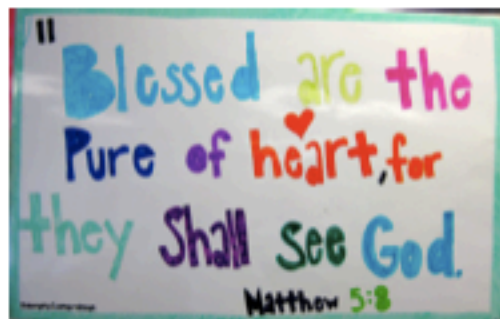 "Blessed are the
Pure of heart, for
they Shall see God.
Matthew 5:8